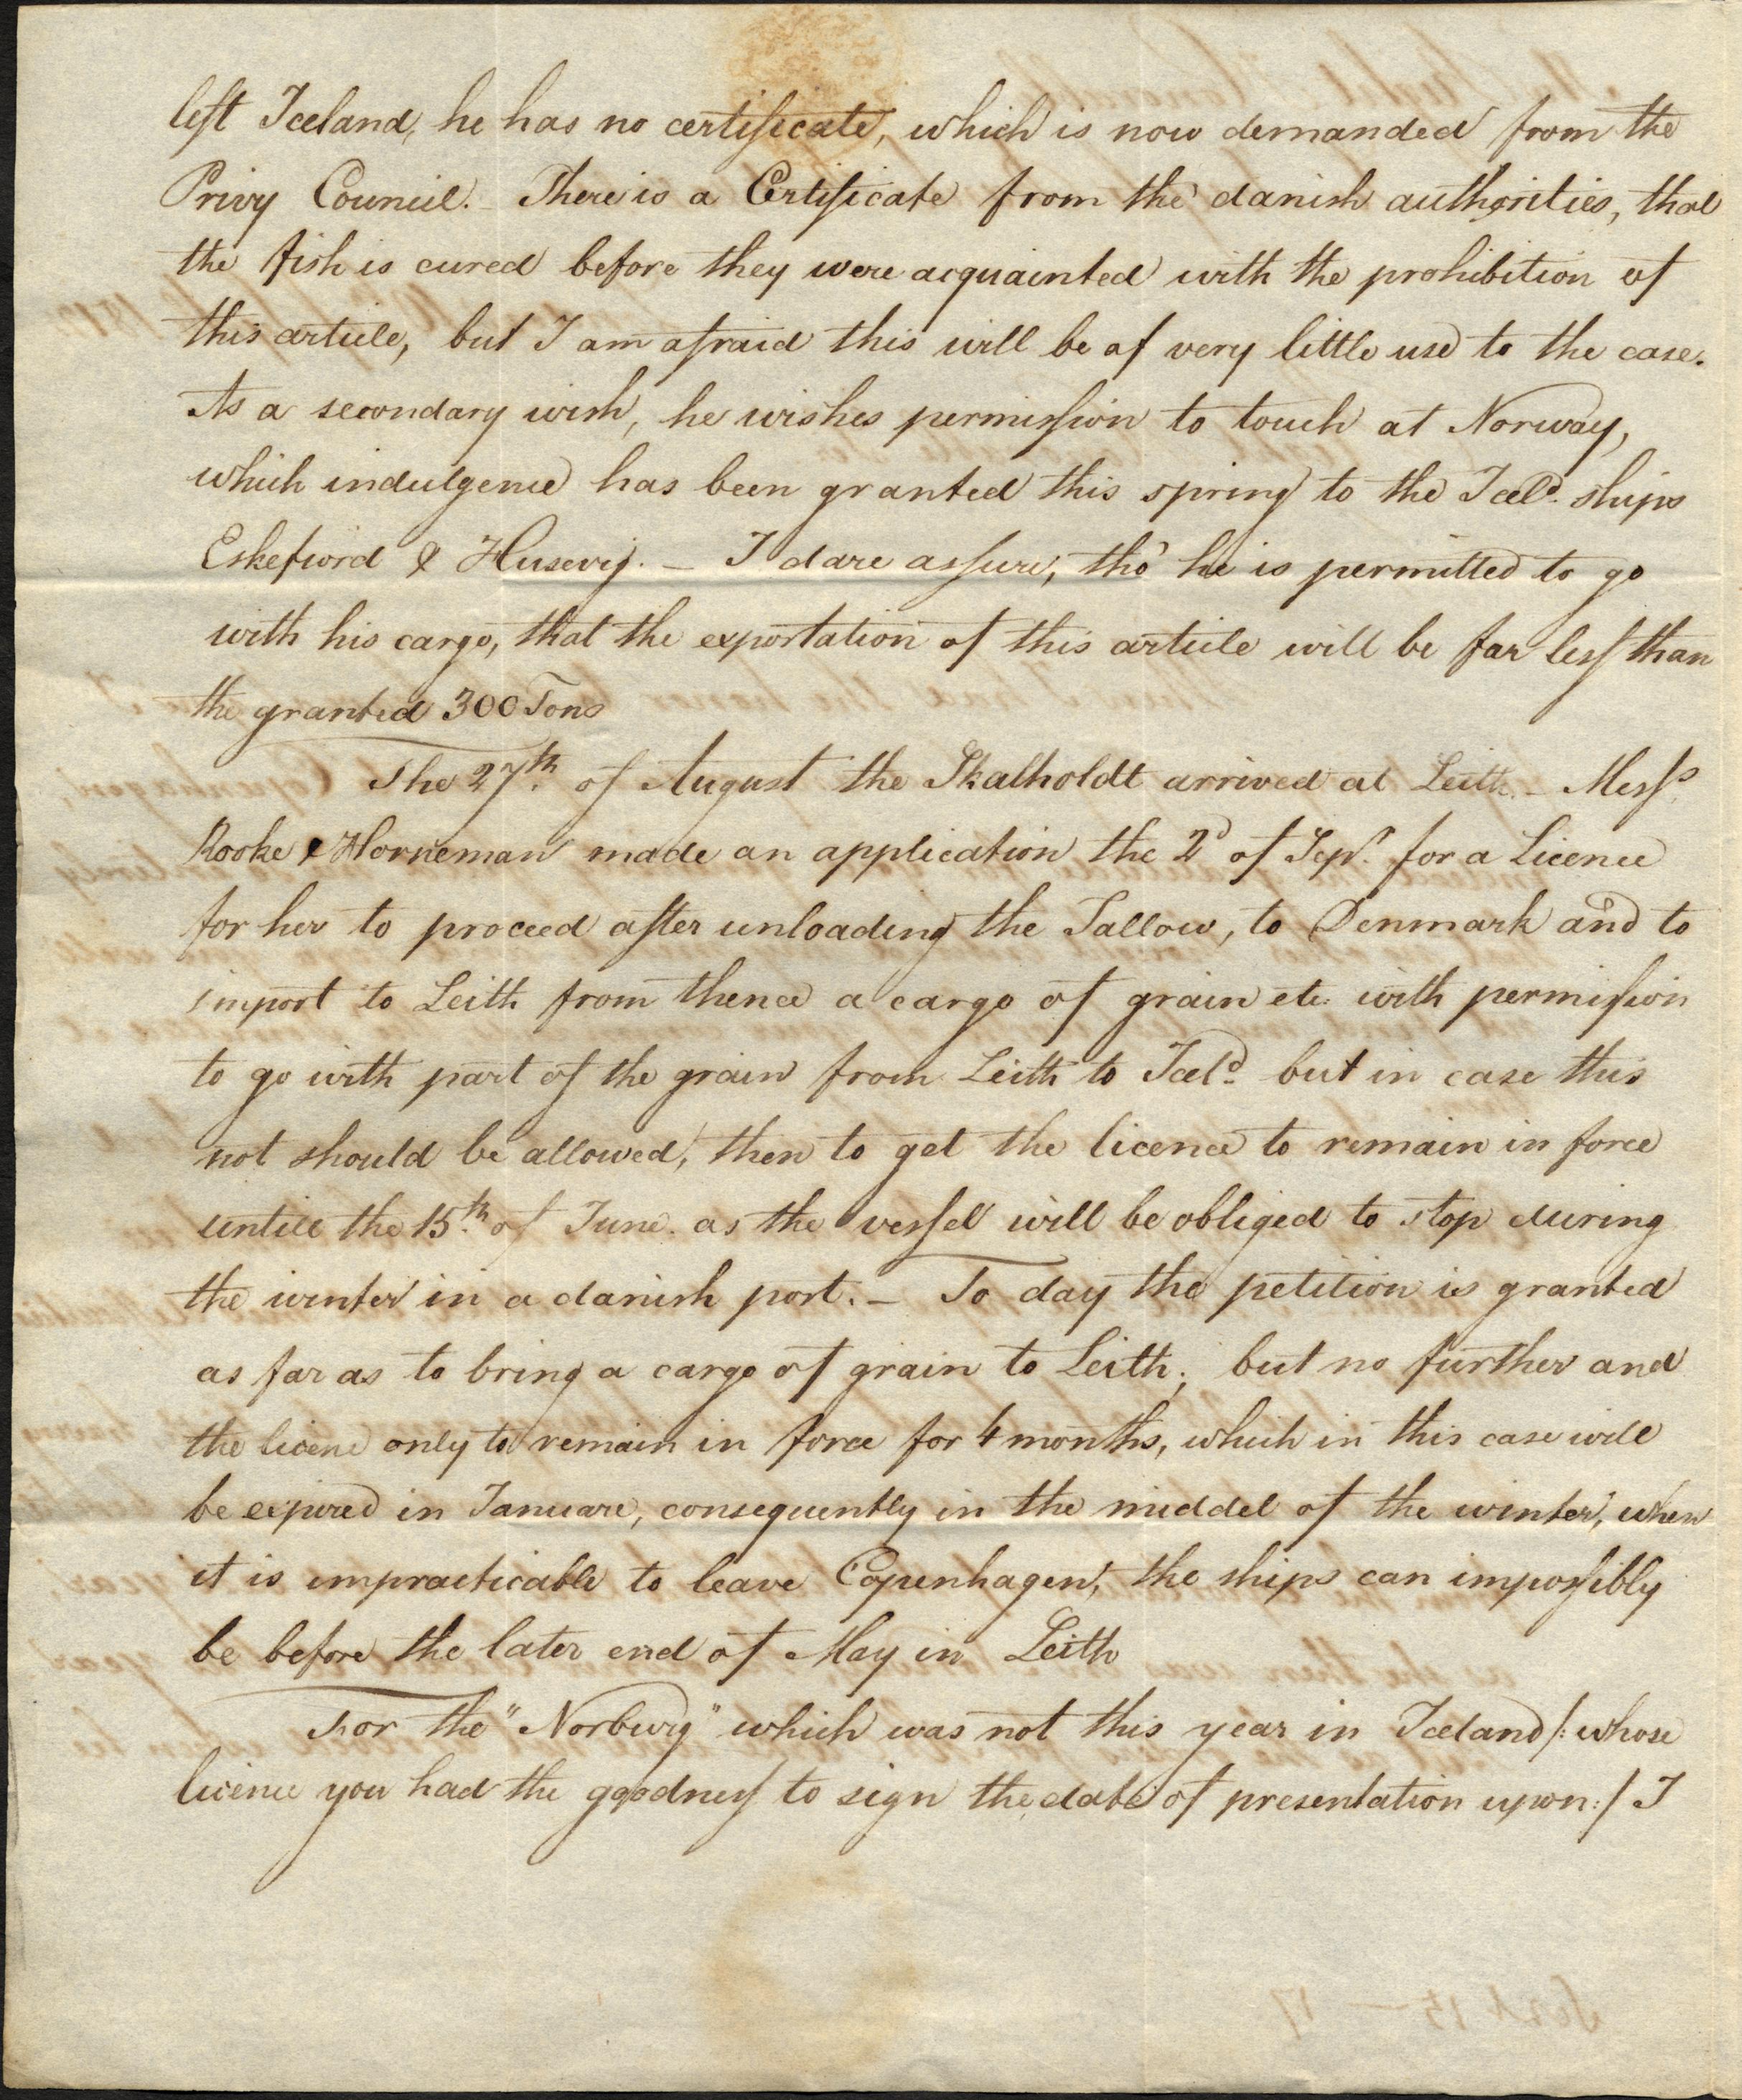 left Iceland, he has no certificate, which is now demanded from the
Privy Council. – There is a Certificate from the danish authorities, that
the fish is cured before they were acquainted with the prohibition of
this article, but I am afraid this will be of very little use to the case.
As a secondary wish, he wishes permission to touch at Norway,
which indulgence has been granted this spring to the Icel<sup>d</sup>. ships
Eskefiord & Husevig. – I dare assure, tho' he is permitted to go
with his cargo, that the exportation of this article will be far less than
the granted 300 Tons
The 27<sup>th</sup>. of August the Skalholdt arrived at Leith. – Mess<sup>s</sup>.
Rooke & Horneman made an application the 2<sup>d</sup> of Sep<sup>r</sup>. for a Licence
for her to proceed after unloading the Tallow, to Denmark and to
import to Leith from thence a cargo of grain etc. with permission
to go with part of the grain from Leith to Icel<sup>d</sup>. but in case this
not should be allowed, then to get the licence to remain in force
untill the 15<sup>th</sup>. of June. as the vessel will be obliged to stop during
the winter in a danish port. – To day the petition is granted
as far as to bring a cargo of grain to Leith; but no further and
the licence only to remain in force for 4 months, which in this case will
be expired in Januare, consequently in the middel of the winter, when
it is impracticable to leave Copenhagen, the ships can impossibly
be before the later end of May in Leith
For the "Norburg" which was not this year in Iceland /: whose
licence you had the goodness to sign the date of presentation upon :/ I